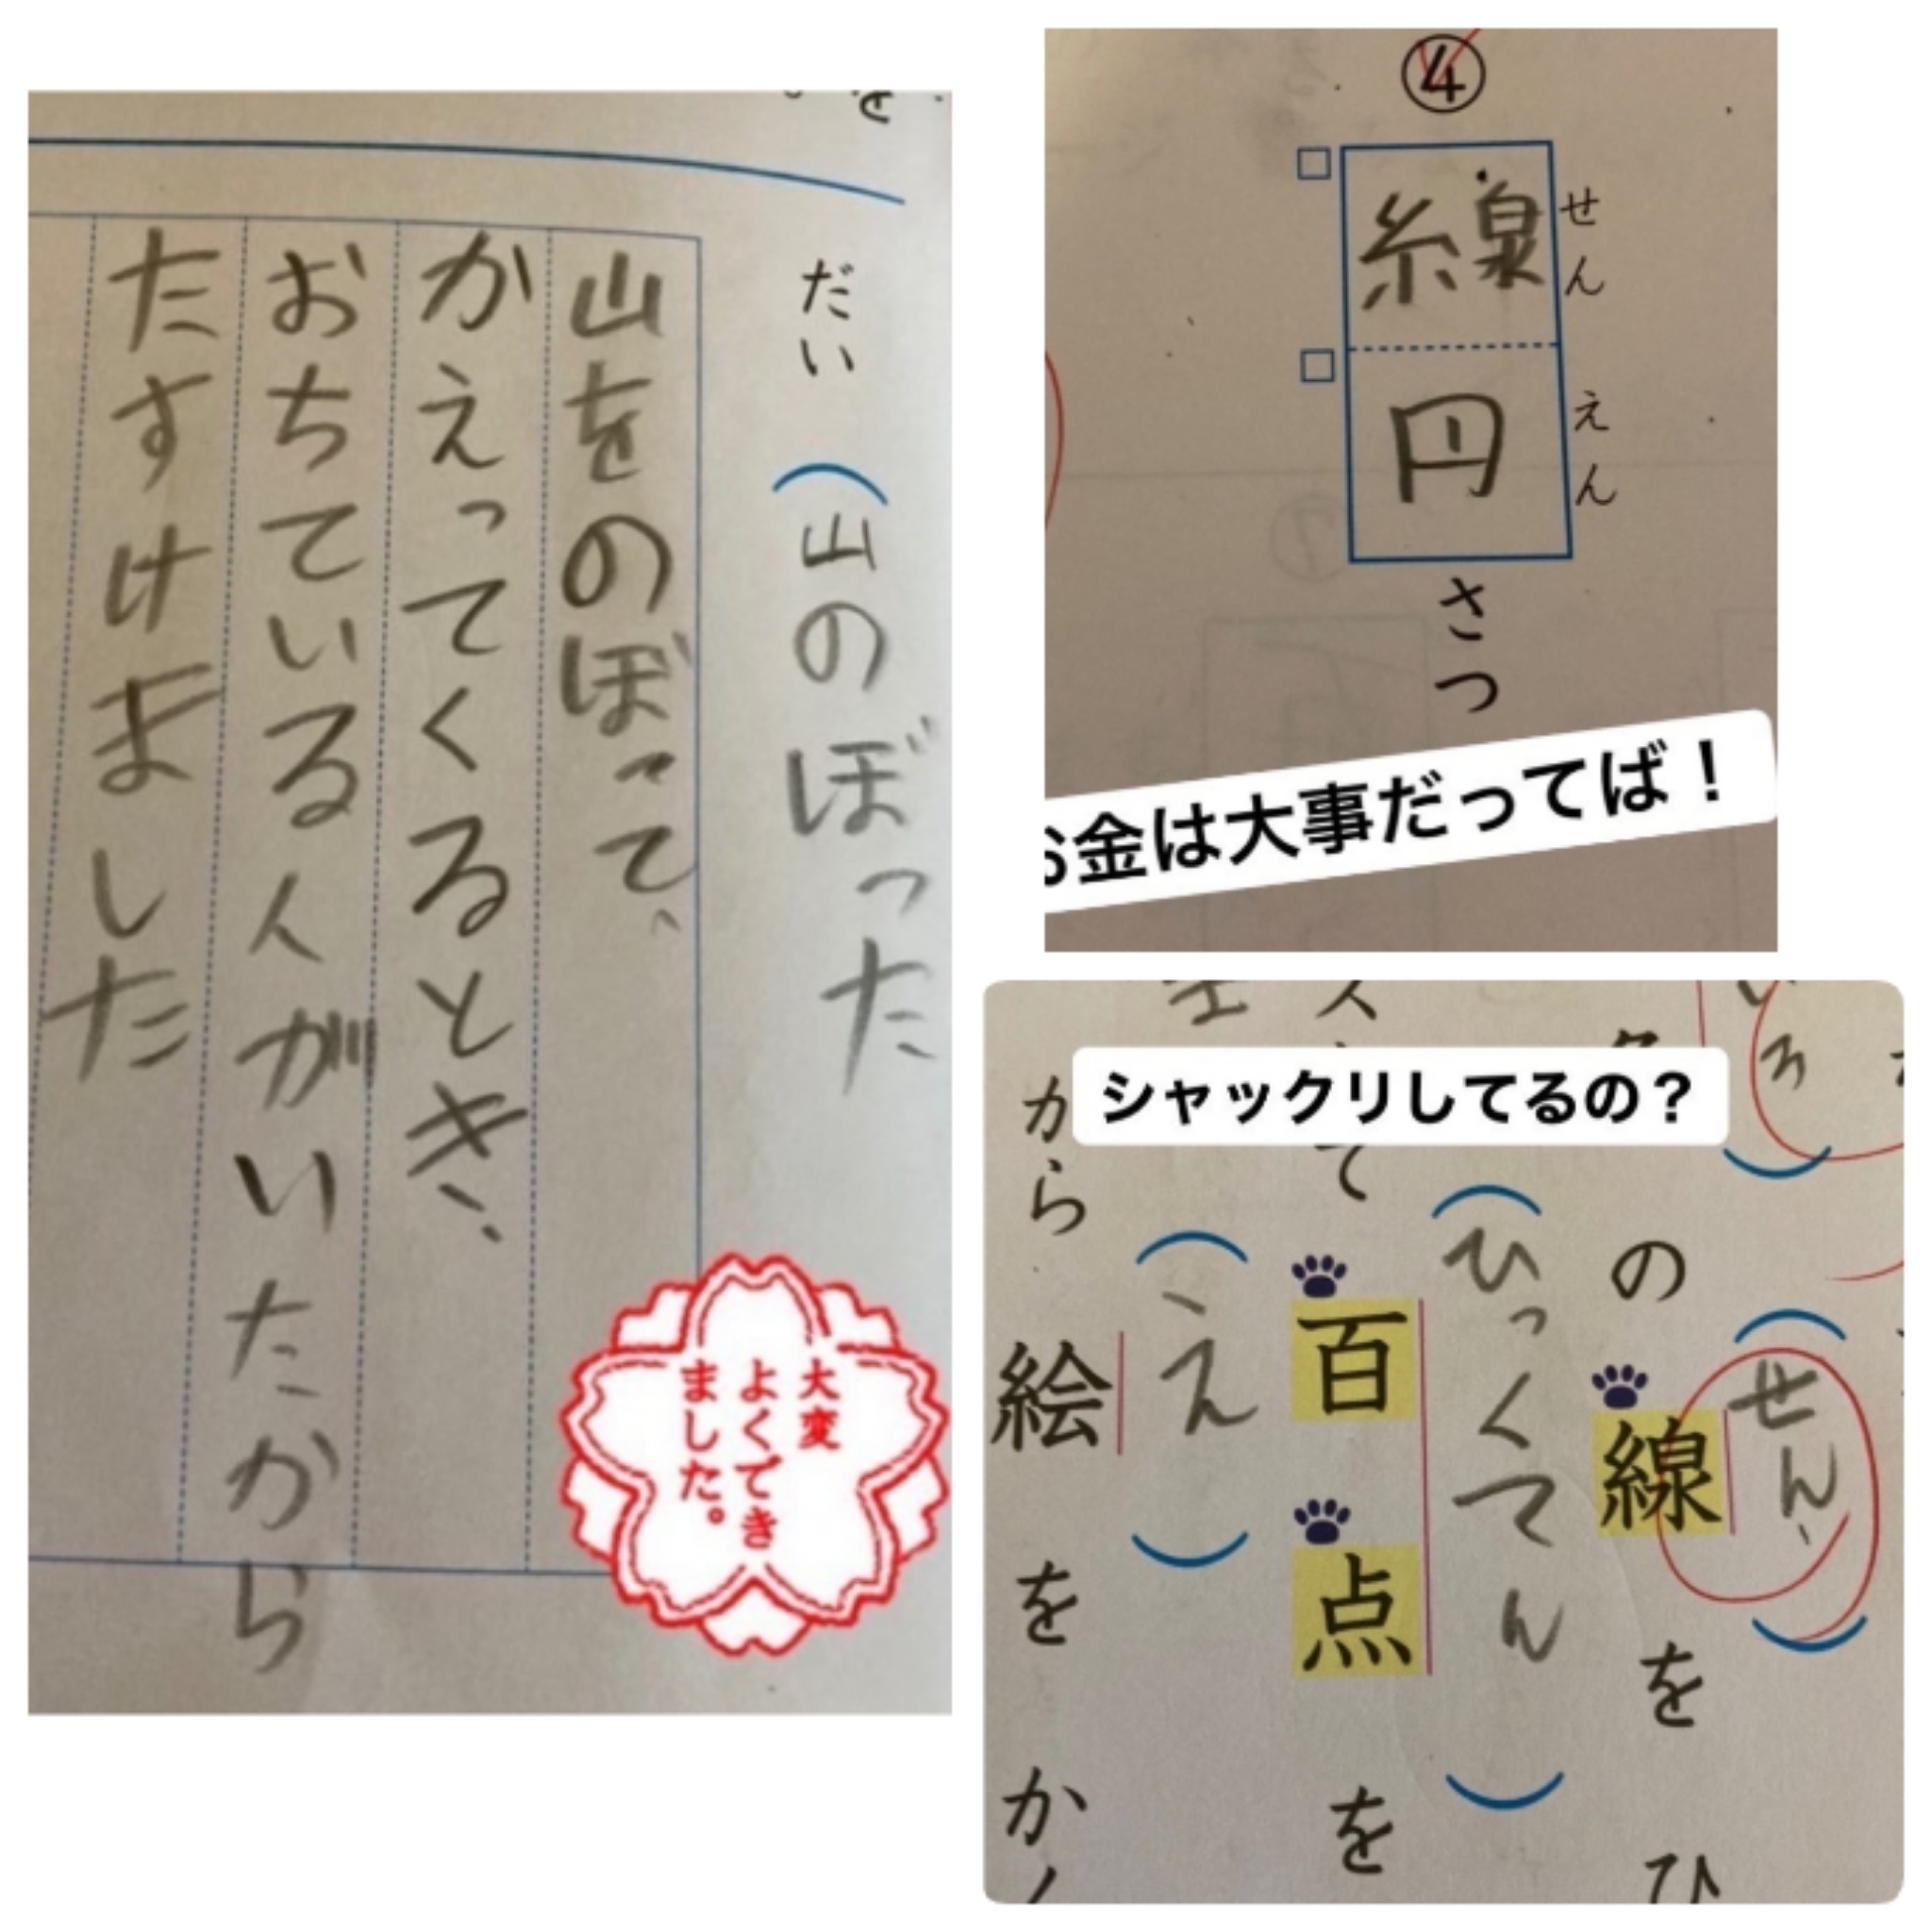 を
だい（山のぼった
山をのぼって、
かえってくるとき、
おちている人がいたから
たすけました
大変
よくでき
ました。
④
せん
線
えん
円
さつ
お金は大事だってば！
シャックリしてるの？
せん
の線をひ
ひっくてん
て百点を
え
から絵をかく